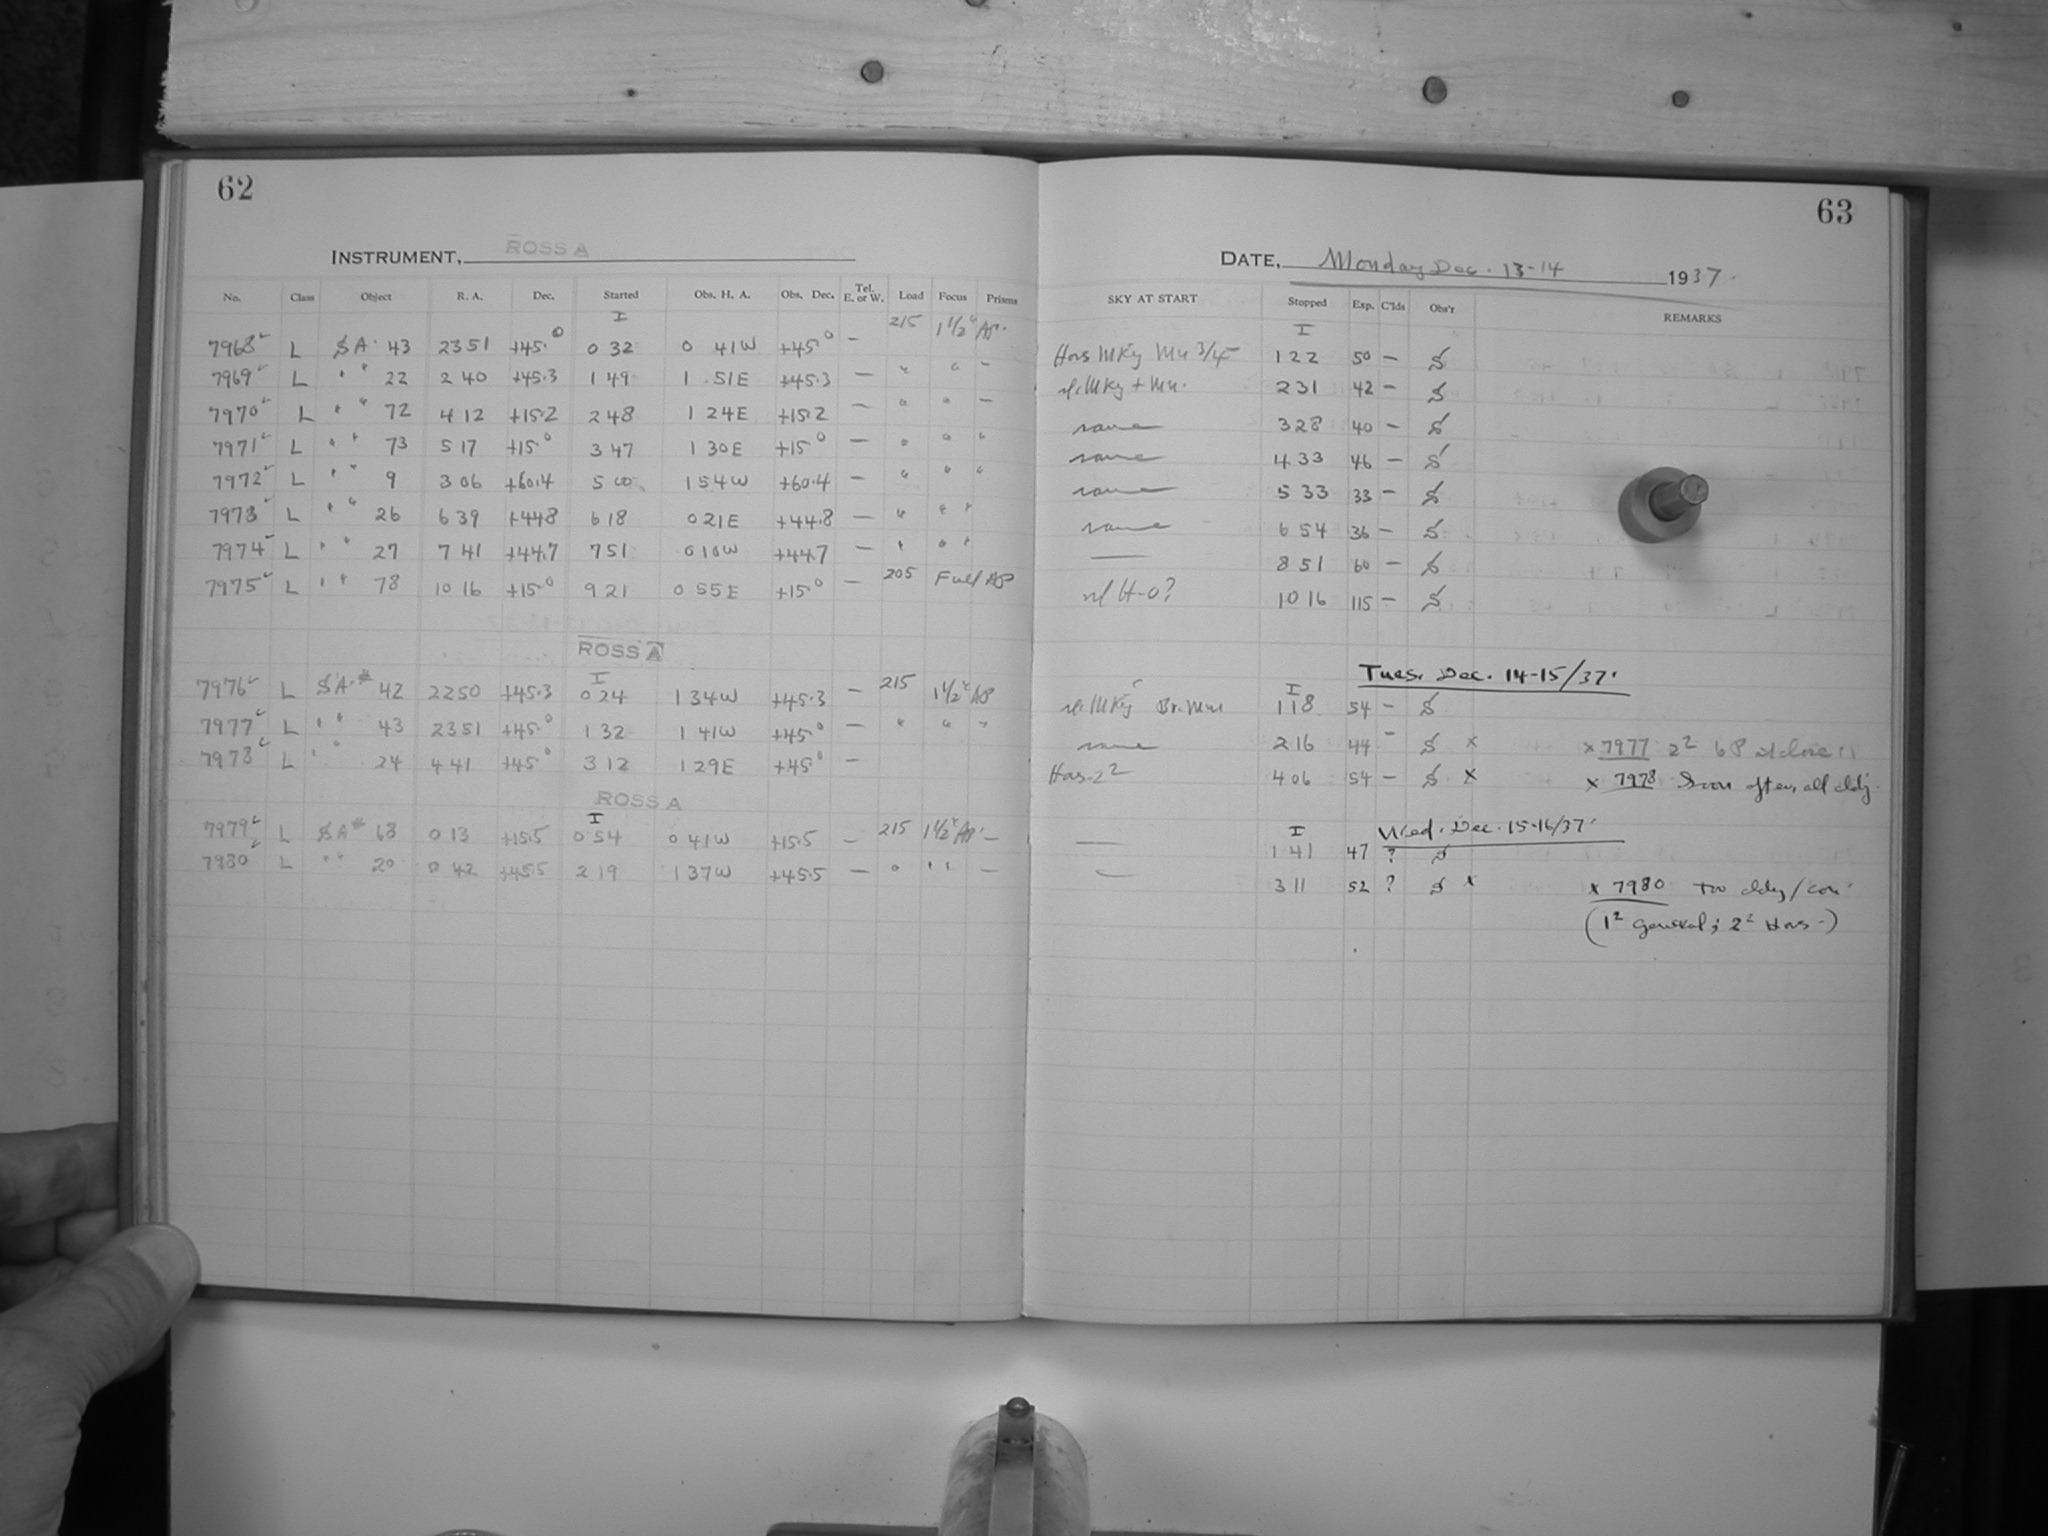 62
INSTRUMENT, ROSS A
No. Class Object R. A. Dec. Started Obs. H. A. Obs. Dec. Tel. E. or W. Load Focus Prisms
I 215 1 1/2" Ap.
7968 L SA. 43 2351 +45.0 0 32 0 41W +45.0 —
7969 L " " 22 2 40 +45.3 1 49 1 51E +45.3 — " " —
7970 L " " 72 4 12 +15.2 2 48 1 24E +15.2 — " " —
7971 L " " 73 5 17 +15.0 3 47 1 30E +15.0 — " " "
7972 L " " 9 3 06 +60.4 5 00 1 54W +60.4 — " " "
7973 L " " 26 6 39 +44.8 6 18 0 21E +44.8 — " " "
7974 L " " 27 7 41 +44.7 7 51 0 10W +44.7 — " " "
7975 L " " 78 10 16 +15.0 9 21 0 55E +15.0 — 205 Full AP
ROSS A
I
7976 L SA.# 42 2250 +45.3 0 24 1 34W +45.3 — 215 1 1/2" AP
7977 L " " 43 2351 +45.0 1 32 1 41W +45.0 — " " "
7978 L " " 24 4 41 +45.0 3 12 1 29E +45.0 —
ROSS A
I
7979 L SA# 68 0 13 +15.5 0 54 0 41W +15.5 — 215 1 1/2" Ap. —
7980 L " " 20 0 42 +45.5 2 19 1 37W +45.5 — " " " —
63
DATE, Monday Dec. 13-14 1937.
SKY AT START Stopped Exp. C'lds Obs'r REMARKS
I
Hors MKy Mn 3/4 1 22 50 — S
MKy + Mn. 2 31 42 — S
same 3 28 40 — S
same 4 33 46 — S
same 5 33 33 — S
same 6 54 36 — S
— 8 51 60 — S
H-0? 10 16 115 — S
Tues. Dec. 14-15/37.
I
MKy Br. Mn 1 18 54 — S
same 2 16 44 — S x x 7977 2²
Hors 2² 4 06 54 — S x x 7978 Soon after, all cldy.
Wed. Dec. 15-16/37.
I
— 1 41 47 ? S
— 3 11 52 ? S x x 7980 too cldy/con
(1² general; 2² Hors-)